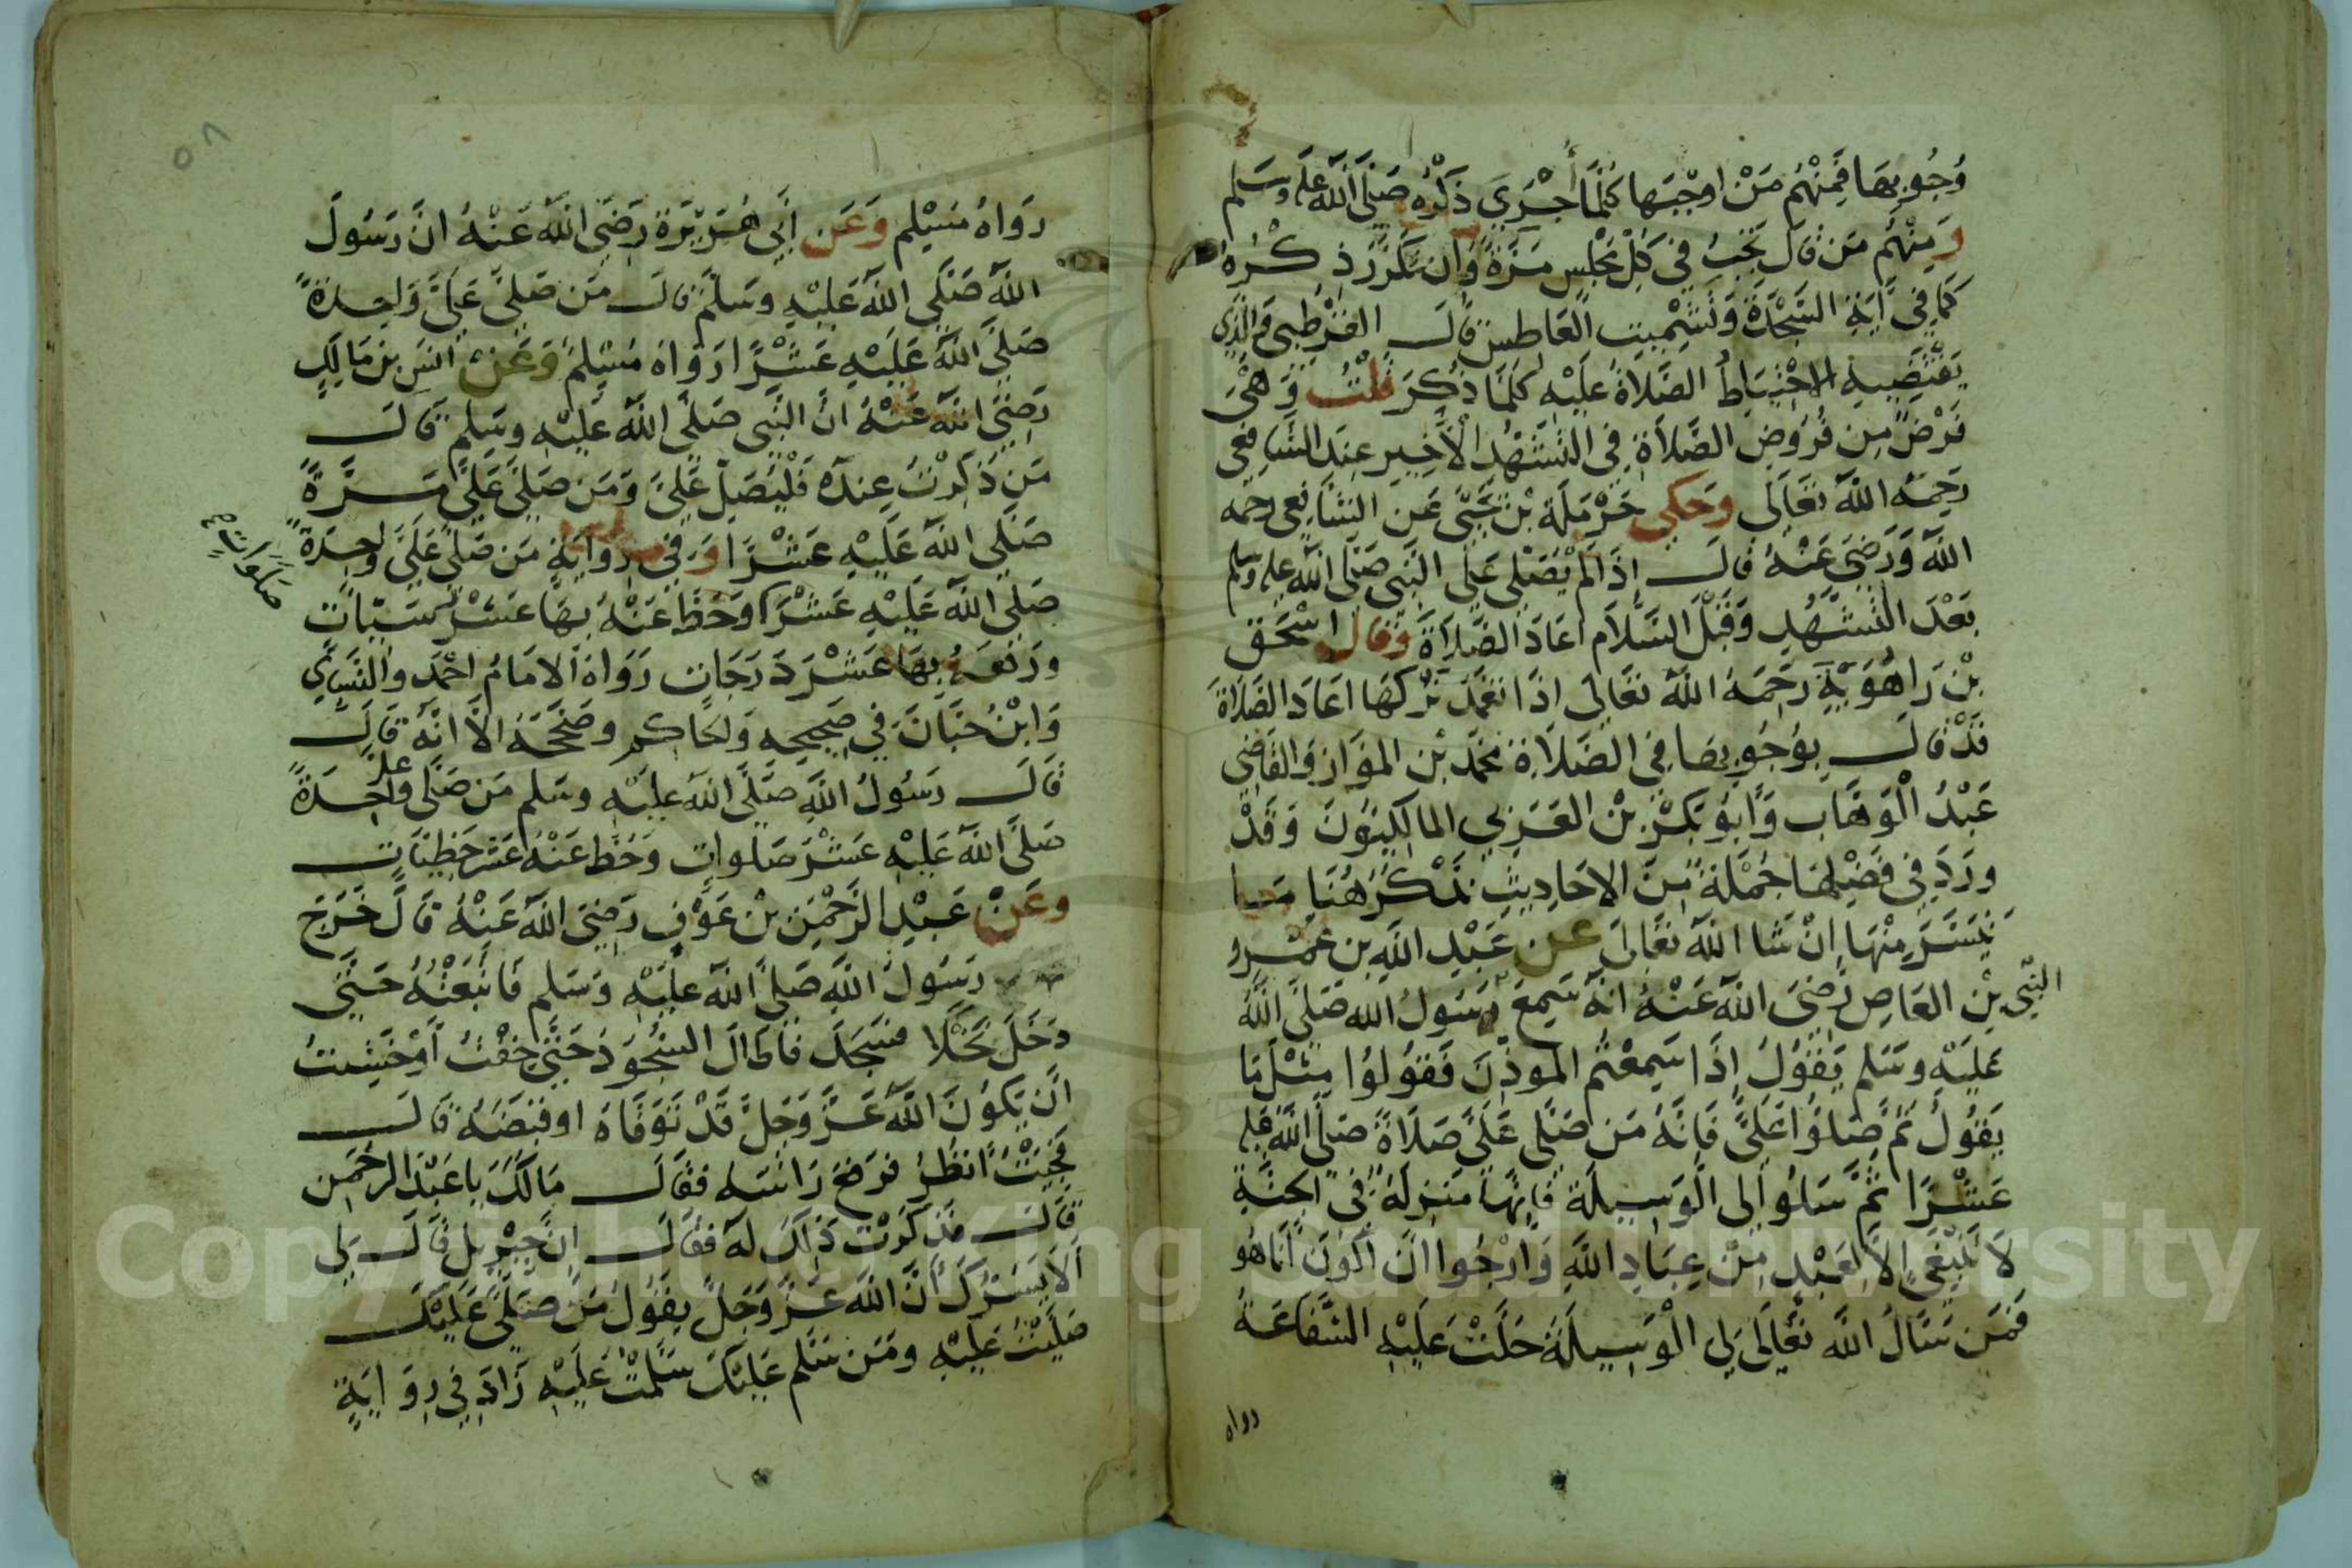 وُجُوبِهَا فَمِنْهُم مَنْ اوْجَبَها كُلَّمَا أجْرَيَ ذكْرُه صَلَّى اللَّه عليه وسَلم
وَمِنْهُم مَن قَالَ تَجبُ في كل مجْلِس مَرَّةً وَان تَكَرَّرَ ذِكْرُهُ
كَما فِي آيَةِ السَّجْدَةِ وَتَشْمِيتِ العَاطِس قالَ القُرْطِبى وَالَّذِي
يَقْتَضِيهِ الاحْتِيَاطُ الصَّلاةُ عَلَيْهِ كلَّمَا ذُكِرَ قُلْتُ وَهْيَ
فَرْضٌ مِن فُرُوضِ الصَّلاَةِ فِي التَّشَهُّدِ الأَخِيرِ عِندَ الشَّافِعِي
رَحِمَهُ اللَّهُ تعَالَى وَحَكي حَرْمَلَة بْنُ يَحْيَى عَنِ الشَّافِعِي رحمه
اللَّهُ وَرَضِيَ عَنْهُ قالَ إِذَا لَمْ يُصَلِّي عَلَى النَّبِي صَلى اللَّه عليه وسلم
بَعْدَ التَّشَهُّدِ وَقَبْلَ السَّلاَم اعَادَ الصَّلاَةَ وَقَالَ اسْحَق
بْنُ رَاهُوَيْهِ رَحِمَهُ اللَّهُ تعَالى اذَا تعَمَّدَ تَرْكَهَا اعَادَ الصَّلاةَ
قَدْ قالَ بِوُجُوبِهَا فِي الصَّلاَةِ مُحَمَّد بْن المَوَّازِ وَالقَاضِي
عَبْدُ الْوَهَّابِ وَابُو بَكْرِ بْن العَرَبِي المالِكِيُّونَ وَقَدْ
ورَدَ فِي فَضْلِهَا جُمْلَةٌ مِنَ الاحَادِيثِ نَذْكُرُ هُنَا مَا
تَيَسَّرَ مِنْهَا إِنْ شَا اللَّهُ تعَالَى عن عَبْدِ اللَّهِ بن عَمْرو
بْنِ العَاصِ رَضِيَ اللَّهُ عَنْهُ انَّهُ سَمِعَ رَسُولَ الله صَلَّى اللَّهُ
النَّبِي
عَلَيْهِ وسَلم يَقُولُ إِذَا سَمِعْتُم الموَذِّنَ فَقُولُوا مِثْلَ مَا
يَقُولُ ثُمَّ صَلُّوا عَلَيَّ فَإِنَّهُ مَن صَلَّى عَلَيَّ صَلاَةً صَلَّى اللَّهُ عَليه
عَشْرًا ثُمَّ سَلُوا لِى الْوَسِيلَة فَإِنَّهَا مَنزِلَةٌ فِى الجنَّةِ
لاَ تَنْبَغِي إِلاَّ لِعَبْدٍ مِنْ عِبَادِ اللَّهِ وَأرْجُوا انْ أكونَ أَنَا هُو
فَمَن سَالَ اللَّهَ تعَالَى لِي الْوَسِيلَةَ حَلَّتْ عَلَيْهِ الشَّفَاعَةُ
رواه
٥٨
رَوَاهُ مُسْلِم وَعَن أَبِي هُرَيْرَةَ رَضِيَ اللَّهُ عَنْهُ انَّ رَسُولَ
اللَّهِ صَلَّى اللَّهُ عَلَيْهِ وسَلمَّ قالَ مَن صَلَّى عَلَيَّ وَاحِدَةً
صَلَّى اللَّهُ عَلَيْهِ عَشْرًا رَوَاهُ مُسْلِمُ وَعَنْ انَسِ بن مَالِكٍ
رَضِيَ اللَّهُ عَنْهُ انَّ النَّبِي صَلَّى اللَّهُ عَلَيْهِ وسَلم قَالَ
مَن ذُكِرْتُ عِندَهُ فَلْيُصَلِّ عَلَيَّ وَمَن صَلَّى عَلَيَّ مَرَّةً
صَلَّى اللَّهُ عَلَيْهِ عَشْرًا وَفِي رِوَايَةٍ مَن صَلَّى عَلَيَّ وَاحِدَةً
صَلَى اللَّهُ عَلَيْهِ عَشْرَ وَحَطَّ عَنْهُ بِهَا عَشْرَ سَيِّئَاتٍ
صَلَوَاتٍ
ورَفعَهُ بِهَا عَشْرَ دَرَجَاتٍ رَوَاهُ الامَامُ احْمَدَ والنَّسَايِ
وَابْنُ حِبَّانَ فِي صَحِيحِهِ وَالحَاكِم وصَحَّحَهُ الاَّ انَّهُ قَالَ
قَالَ رَسُولُ اللَّهِ صَلَّى اللَّهُ عَلَيْهِ وسَلم مَن صَلَّى علي وَاحِدَةً
صَلَّى اللَّهُ عَلَيْهِ عَشْرَ صَلَواتٍ وَحُط عَنْهُ عَشر خَطِيئاتِ
وعَنْ عَبْدِ الرَّحْمَنِ بْن عَوْفٍ رَضِيَ اللَّهُ عَنْهُ قَالَ خَرَجَ
رَسُولُ اللَّهِ صَلَّى اللَّهُ عَلَيْهِ وَسَلم فَاتَّبَعْتُهُ حَتَّى
دَخَلَ نَخْلاً فسَجَدَ فَاطَالَ السُّجُودَ حَتَّى خِفْتُ أَوْ خَشِيتُ
انْ يَكُونَ اللَّهُ عَزَّ وَجَلَّ قَدْ تَوَفَّاهُ او قَبَضَهُ قَالَ
فَجِئْتُ انظُرُ فرَفعَ رَاسَه فَقَالَ مَالَكَ يا عَبْدَ الرحْمَن
قَالَ فذَكَرْتُ ذَلِكَ لَهُ فَقَالَ انَّ جِبْرِيل قَالَ لِي
ألاَ يَسُرُّكَ أَنَّ اللَّهَ عَزَّ وَجَلَّ يقُولُ مَنْ صَلَّى عَلَيْكَ
صَلَّيْتُ عَلَيْهِ ومَن سَلَّم عَلَيْكَ سَلَّمْتُ عَلَيْهِ زَادَ فِي رِوَايَةٍ
Copyright © King Saud University